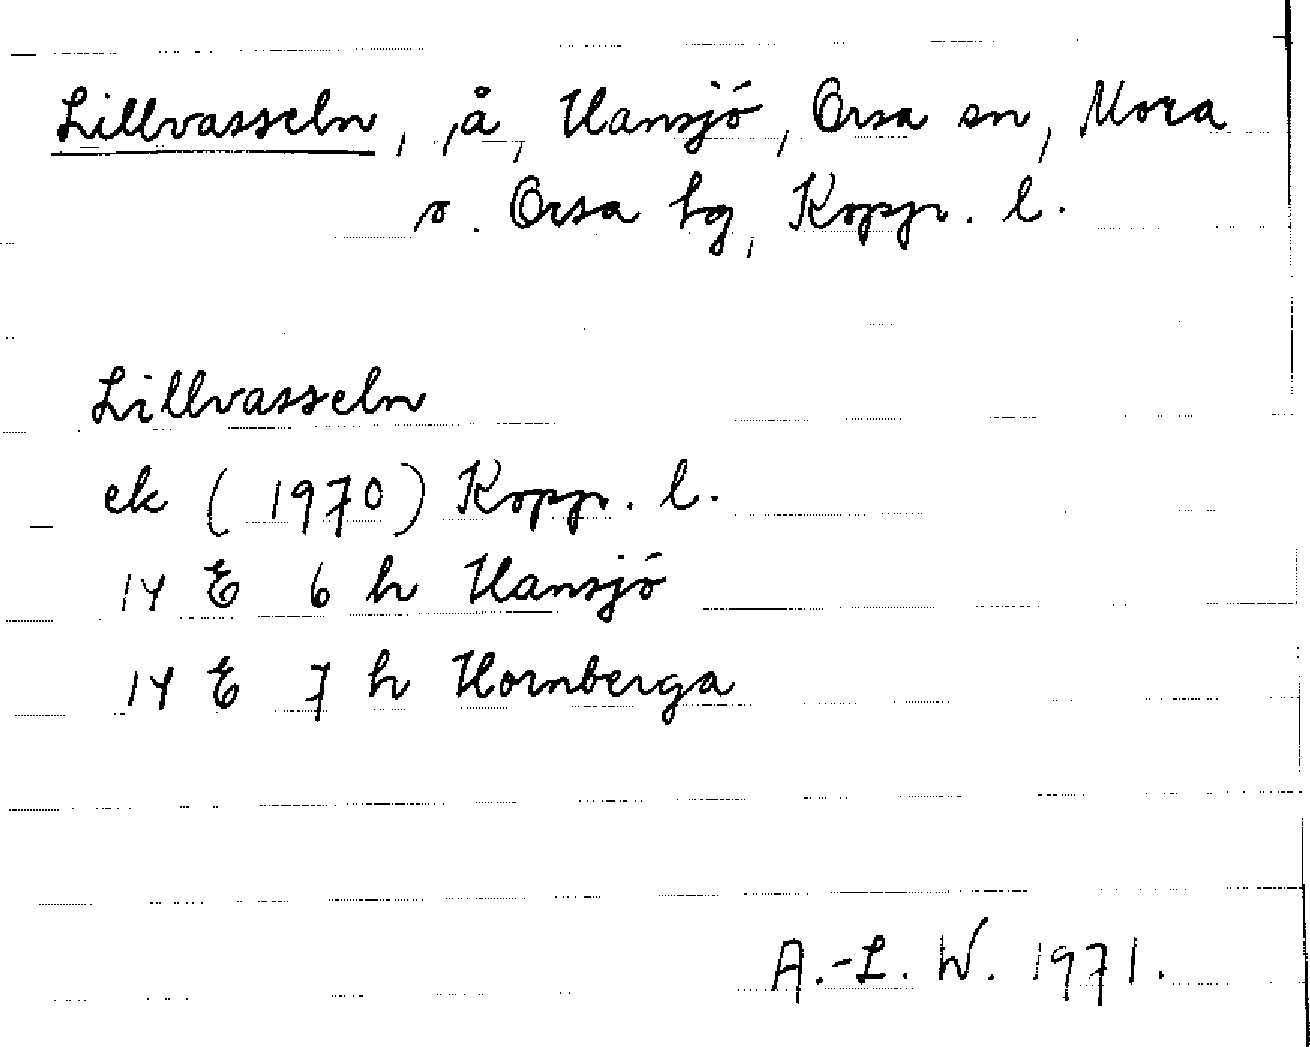 Lillvasseln, å, Hansjö, Orsa sn, Mora
o. Orsa hg, Kopp. l.
Lillvasseln
ek (1970) Kopp. l.
14 E 6 h Hansjö
14 E 7 h Hornberga
A.-L. W. 1971.